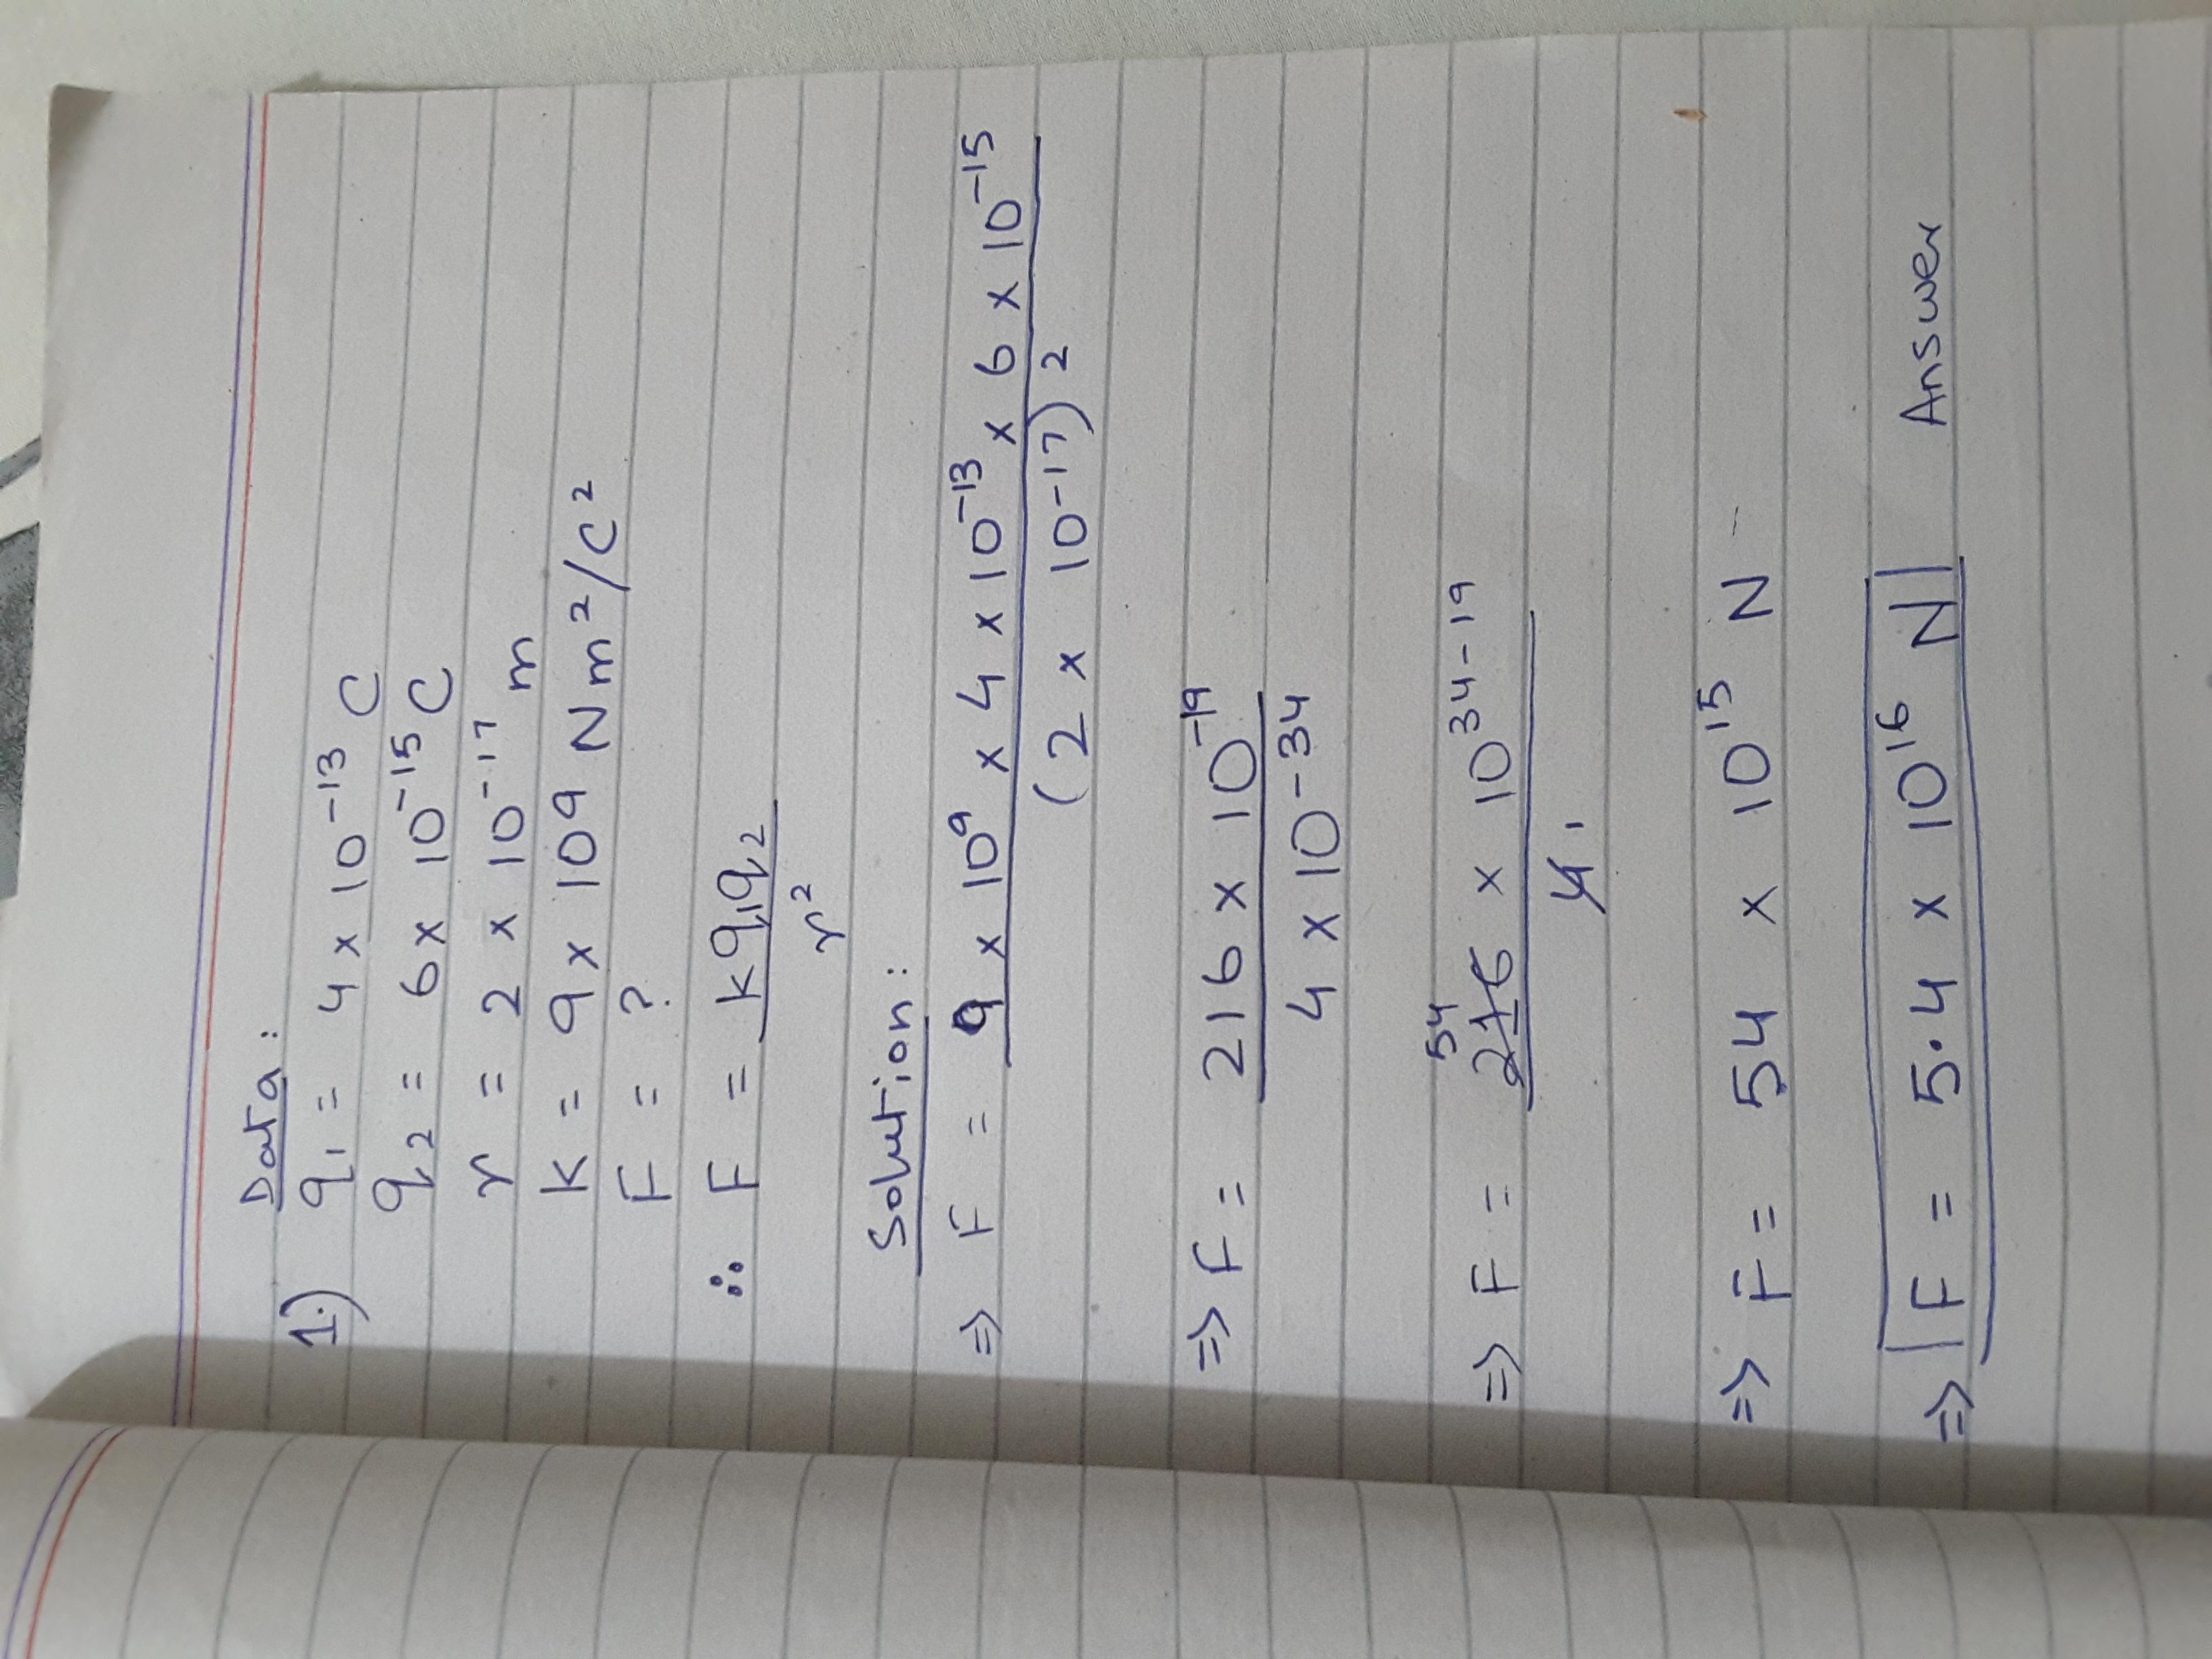 Data:
1.) q₁ = 4 x 10⁻¹³ C
q₂ = 6 x 10⁻¹⁵ C
r = 2 x 10⁻¹⁷ m
K = 9 x 10⁹ Nm²/C²
F = ?
∴ F = kq₁q₂
r²
Solution:
⇒ F = 9 x 10⁹ x 4 x 10⁻¹³ x 6 x 10⁻¹⁵
(2 x 10⁻¹⁷)²
⇒ F = 216 x 10⁻¹⁹
4 x 10⁻³⁴
54
⇒ F = 216 x 10³⁴⁻¹⁹
4 1
⇒ F = 54 x 10¹⁵ N
⇒ F = 5.4 x 10¹⁶ N Answer